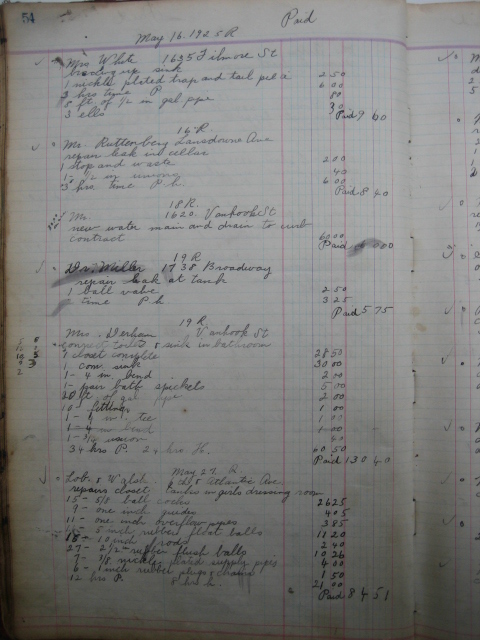 54
May 16. 1925 R Paid
Mrs White 1635 Filmore St
bracing up sink
1 nickle plated trap and tail piece 2 50
3 hrs time P 6 00
5 ft of 1/2 in gal pipe 80
3 ells 30
Paid 9 60
16 R.
Mr. Ruttenberg Lansdowne Ave
repair leak in cellar
1 stop and waste 2 00
1- 1/2 in unions 40
3 hrs time P. h. 6 00
Paid 8 40
18 R.
Mr. 1620. Vanhook St
new water main and drain to curb
contract 60 00
Paid 00
19 R
Dr. Miller 1738 Broadway
repair leak at tank
1 ball valve 2 50
time P h 3 25
Paid 5 75
19 R
Mrs. Derham Vanhook St
toilet & sink in bathroom
1 closet complete 28 50
1 com. sink 30 00
1- 4 in. bend 2 00
1- pair bath spickets 5 00
20 ft of gal pipe 2 00
10 fittings 1 00
1- 4 in. tee 1 00
1- 4 in bend 1 00
1- union 40
34 hrs P. 24 hrs H. 60 50
Paid 130 40
May 27. R.
Lob. & Walsh & Atlantic Ave.
repairs closet tanks in girls dressing room
15- 5/8 ball cocks 26 25
9- one inch guides 4 05
11- one inch overflow pipes 3 85
5 inch rubber float balls 11 20
10 inch rods 2 40
27- 2 1/2" rubber flush balls 10 26
7- 3/8 nickle plated supply pipes 4 00
6- 1 inch rubber plugs & chains 1 50
12 hrs P. 8 hrs h. 21 00
Paid 84 51